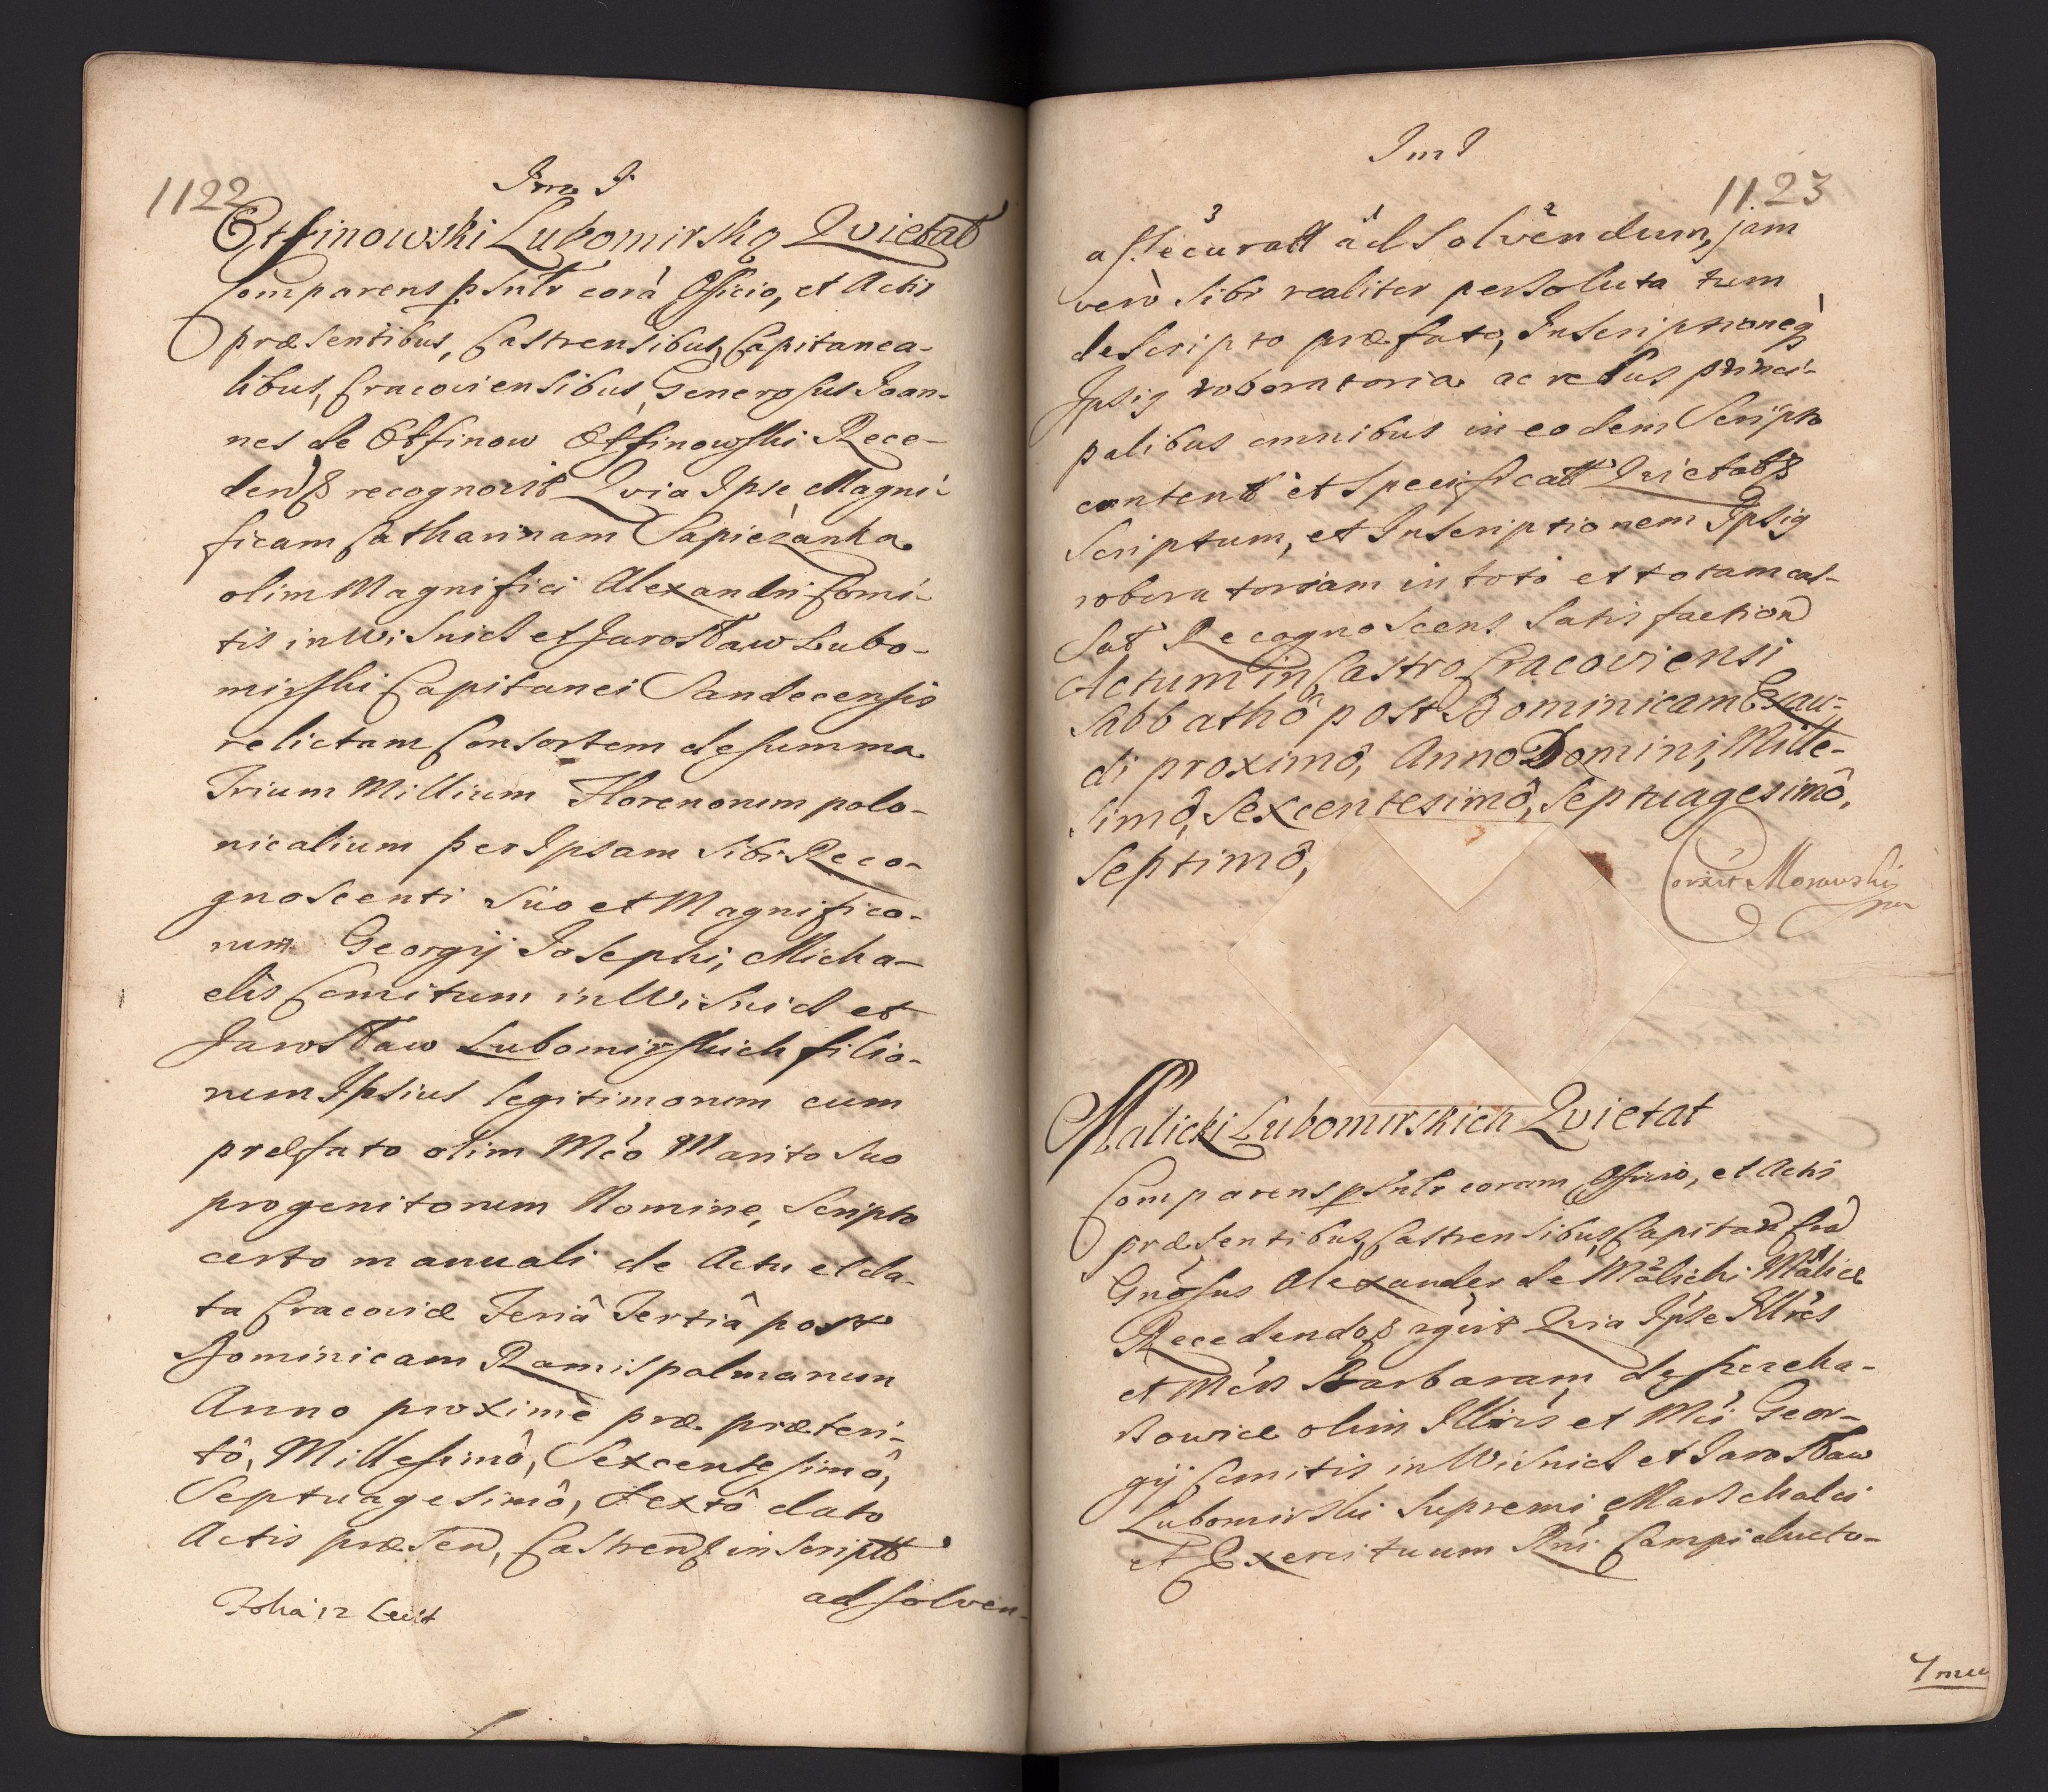 1122
Im I
Otfinowski Lubomirską Qvietat
Comparens psntr corā Officio, et Actis
præsentibus, Castrensibus, Capitanea-
libus, Cracoviensibus, Generosus Joan-
nes de Otfinow Otfinowski Rece-
dend recognovit Qvia Ipse Magni-
ficam Catharinam Sapiezanka
olim Magnifici Alexandri Comi-
tis in Wisnicz et Jarosław Lubo-
mirski Capitanei Sandecensis
relictam Consortem de summa
Trium Millium Florenorum polo-
nicalium per Ipsam sibi Reco-
gnoscenti suo et Magnifico-
rum Georgij Josephi, Micha-
elis Comitum in Wisnicz et
Jarosław Lubomirskich filio-
rum Ipsius legitimorum cum
præfato olim Mco Marito suo
progenitorum Nomine, Scripto
certo manuali de Actu et da-
ta Cracoviæ Feriâ Tertiâ post
Dominicam Ramispalmarum
Anno proximè præ præteri-
tô, Millesimô, Sexcentesimô,
Septuagesimô, Sextô dato
Actis præsen, Castren inscriptt
ad solven-
1123
Im I
3 1 2
assecuratt ad solvendum, jam
verò sibi realiter persoluta tum
de Scripto præfato, Inscriptioneq
Ipsig roboratoria ac rebus princi-
palibus omnibus in eodem Scripto
content et Specificatt Qvietatq
Scriptum, et Inscriptionem Ipsig
roboratoriam in toto et totam cas-
sat Recognoscens Satisfaction
Actum in Castro Cracoviensi
Sabbathô post Dominicam Exau-
di proximô, Anno Domini, Mille-
simô, Sexcentesimô, Septuagesimô,
Septimô,
Corrit Morawski
Malicki Lubomirskich Qvietat
Comparens psntr coram Officio, et Actis
præsentibus, Castrensibus, Capitan Cra
Gnosus Alexander de Malicki Malice
Recedendoq rgvit Qvia Ipse Illres
et Mcas Barbaram de
olim Illris et Mci Geor-
gij Comitis in Wisnicz et Jarosław
Lubomirski Supremi Marschalci
et Exercituum Rni Campiducto-